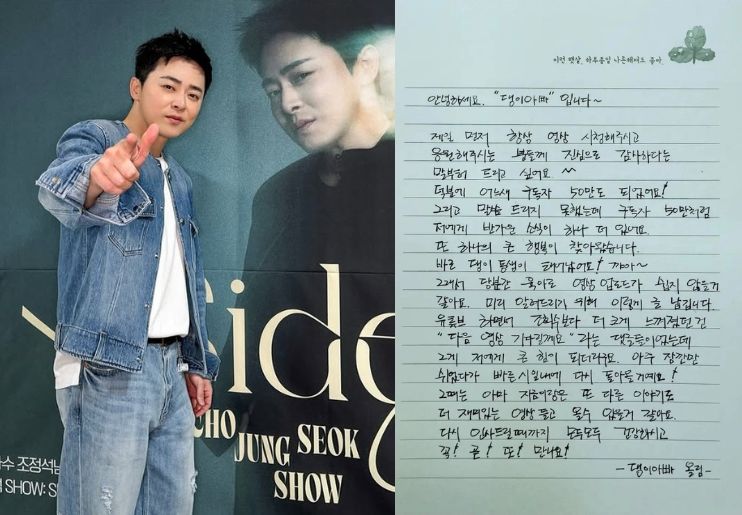 Side
CHO
JUNG
SEOK
SHOW
수 조정석
SHOW: S
이런 햇살, 하루종일 나른해져도 좋아.
안녕하세요. "댕이아빠" 입니다~
제일 먼저 항상 영상 시청해주시고
응원해주시는 분들께 진심으로 감사하다는
말부터 드리고 싶어요 ^^
덕분에 어느새 구독자 50만도 되었어요!
그리고 말씀 드리지 못했는데 구독자 50만처럼
저에게 반가운 소식이 하나 더 있어요.
또 하나의 큰 행복이 찾아왔습니다.
바로 댕이 동생이 태어났어요! 꺄아~
그래서 당분간 육아로 영상 업로드가 쉽지 않을거
같아요. 미리 알려드리기 위해 이렇게 글 남깁니다.
유튜브 하면서 조회수보다 더 크게 느껴졌던 건
"다음 영상 기다릴께요"라는 댓글들이었는데
그게 저에게 큰 힘이 되더라구요. 아주 잠깐만
쉬었다가 빠른시일내에 다시 돌아올게요!
그때는 아마 또 다른 이야기로
더 재미있는 영상 들고 올수 있을거 같아요.
다시 인사드릴때까지 모두모두 건강하시고
꼭! 곧! 또! 만나요!
- 댕이아빠 올림 -